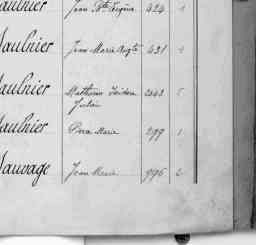 aulnier Jean Bte Eugène 424 1
aulnier Jean Marie Augte 421 1
aulnier Mathurin Isidore 2443 5
Julien
aulnier Pierre Marie 299 1
Sauvage Jean Marie 996 2